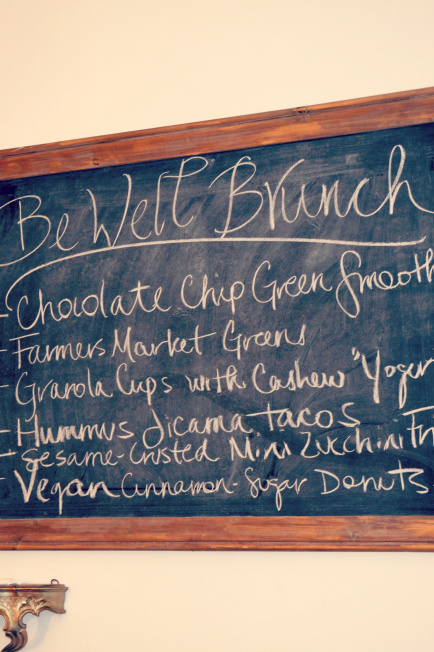 Be Well Brunch
- Chocolate Chip Green Smooth
- Farmers Market Greens
- Granola Cups with Cashew "Yoger
- Hummus Jicama Tacos
- Sesame-Crusted Mini Zucchini Fri
- Vegan Cinnamon-Sugar Donuts